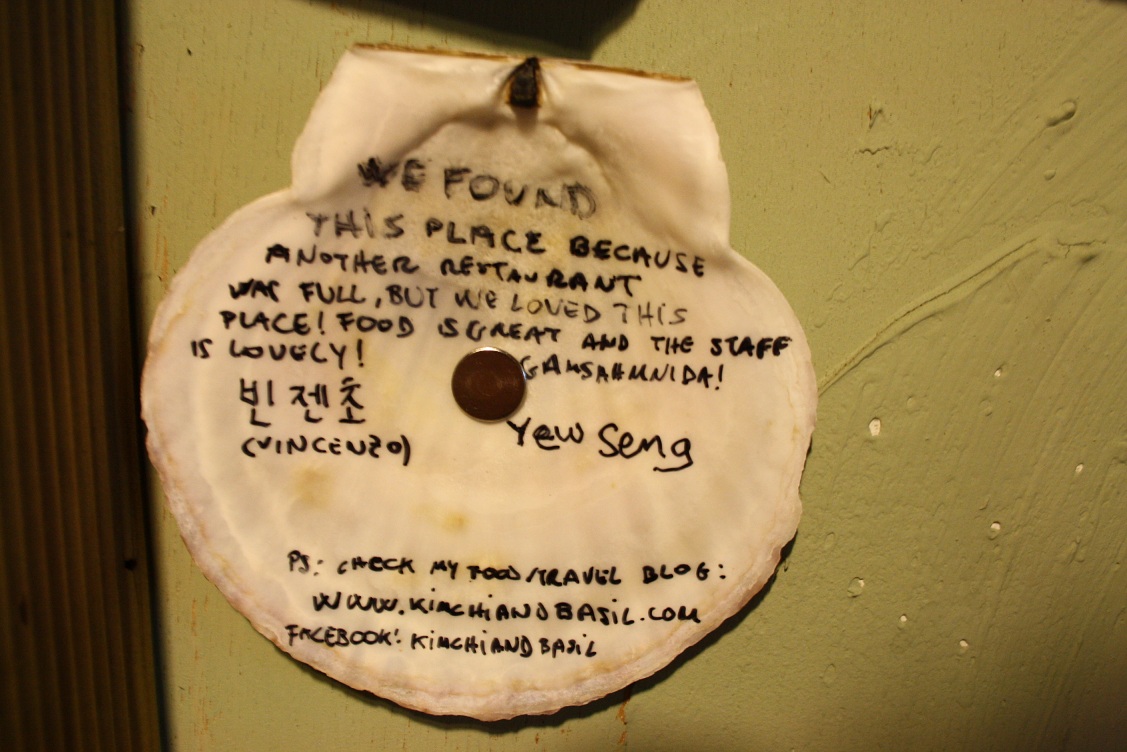 WE FOUND
THIS PLACE BECAUSE
ANOTHER RESTAURANT
WAS FULL, BUT WE LOVED THIS
PLACE! FOOD IS GREAT AND THE STAFF
IS LOVELY!
GAMSAHMNIDA!
빈젠초
(VINCENZO)
Yew Seng
PS: CHECK MY FOOD/TRAVEL BLOG:
WWW.KIMCHIANDBASIL.COM
FACEBOOK: KIMCHIANDBASIL